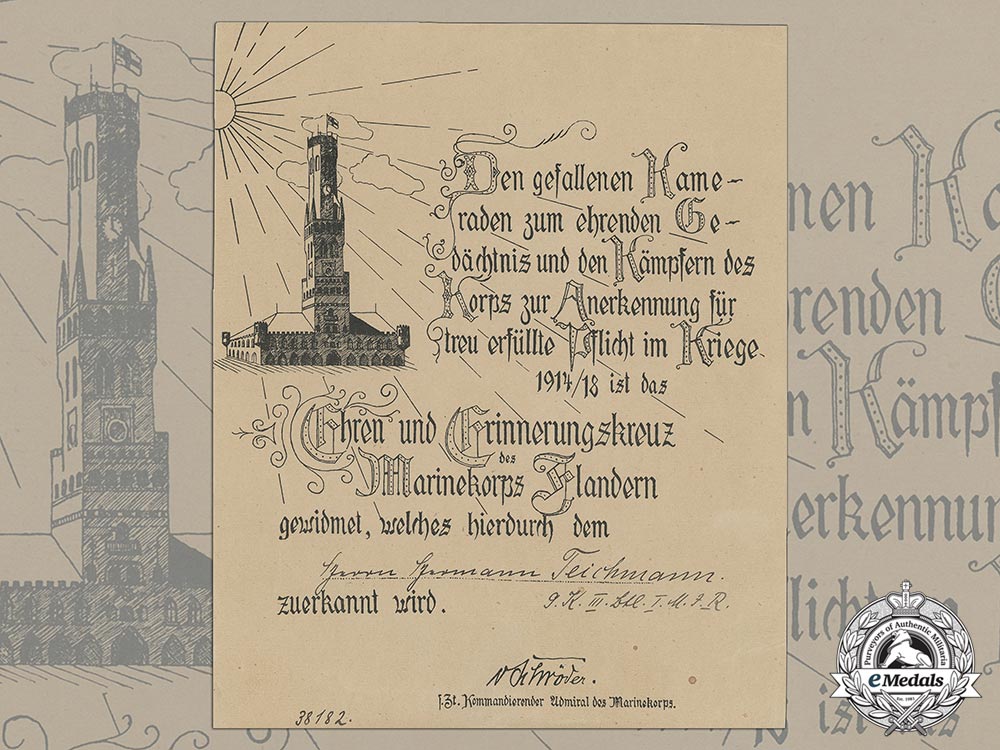 Den gefallenen Kame-
raden zum ehrenden Ge-
dächtnis und den Kämpfern des
Korps zur Anerkennung für
treu erfüllte Pflicht im Kriege
1914/18 ist das
Ehren und Erinnerungskreuz
des
Marinekorps Flandern
gewidmet, welches hierdurch dem
Herrn Hermann Teichmann.
zuerkannt wird.
9. K. III. Btl. I. M. I. R.
v Schröder.
z. Zt. Kommandierender Admiral des Marinekorps.
38182.
nen Ka
renden G
n Kämpf
erkennun
licht im
ist das
Purveyors of Authentic Militaria
eMedals